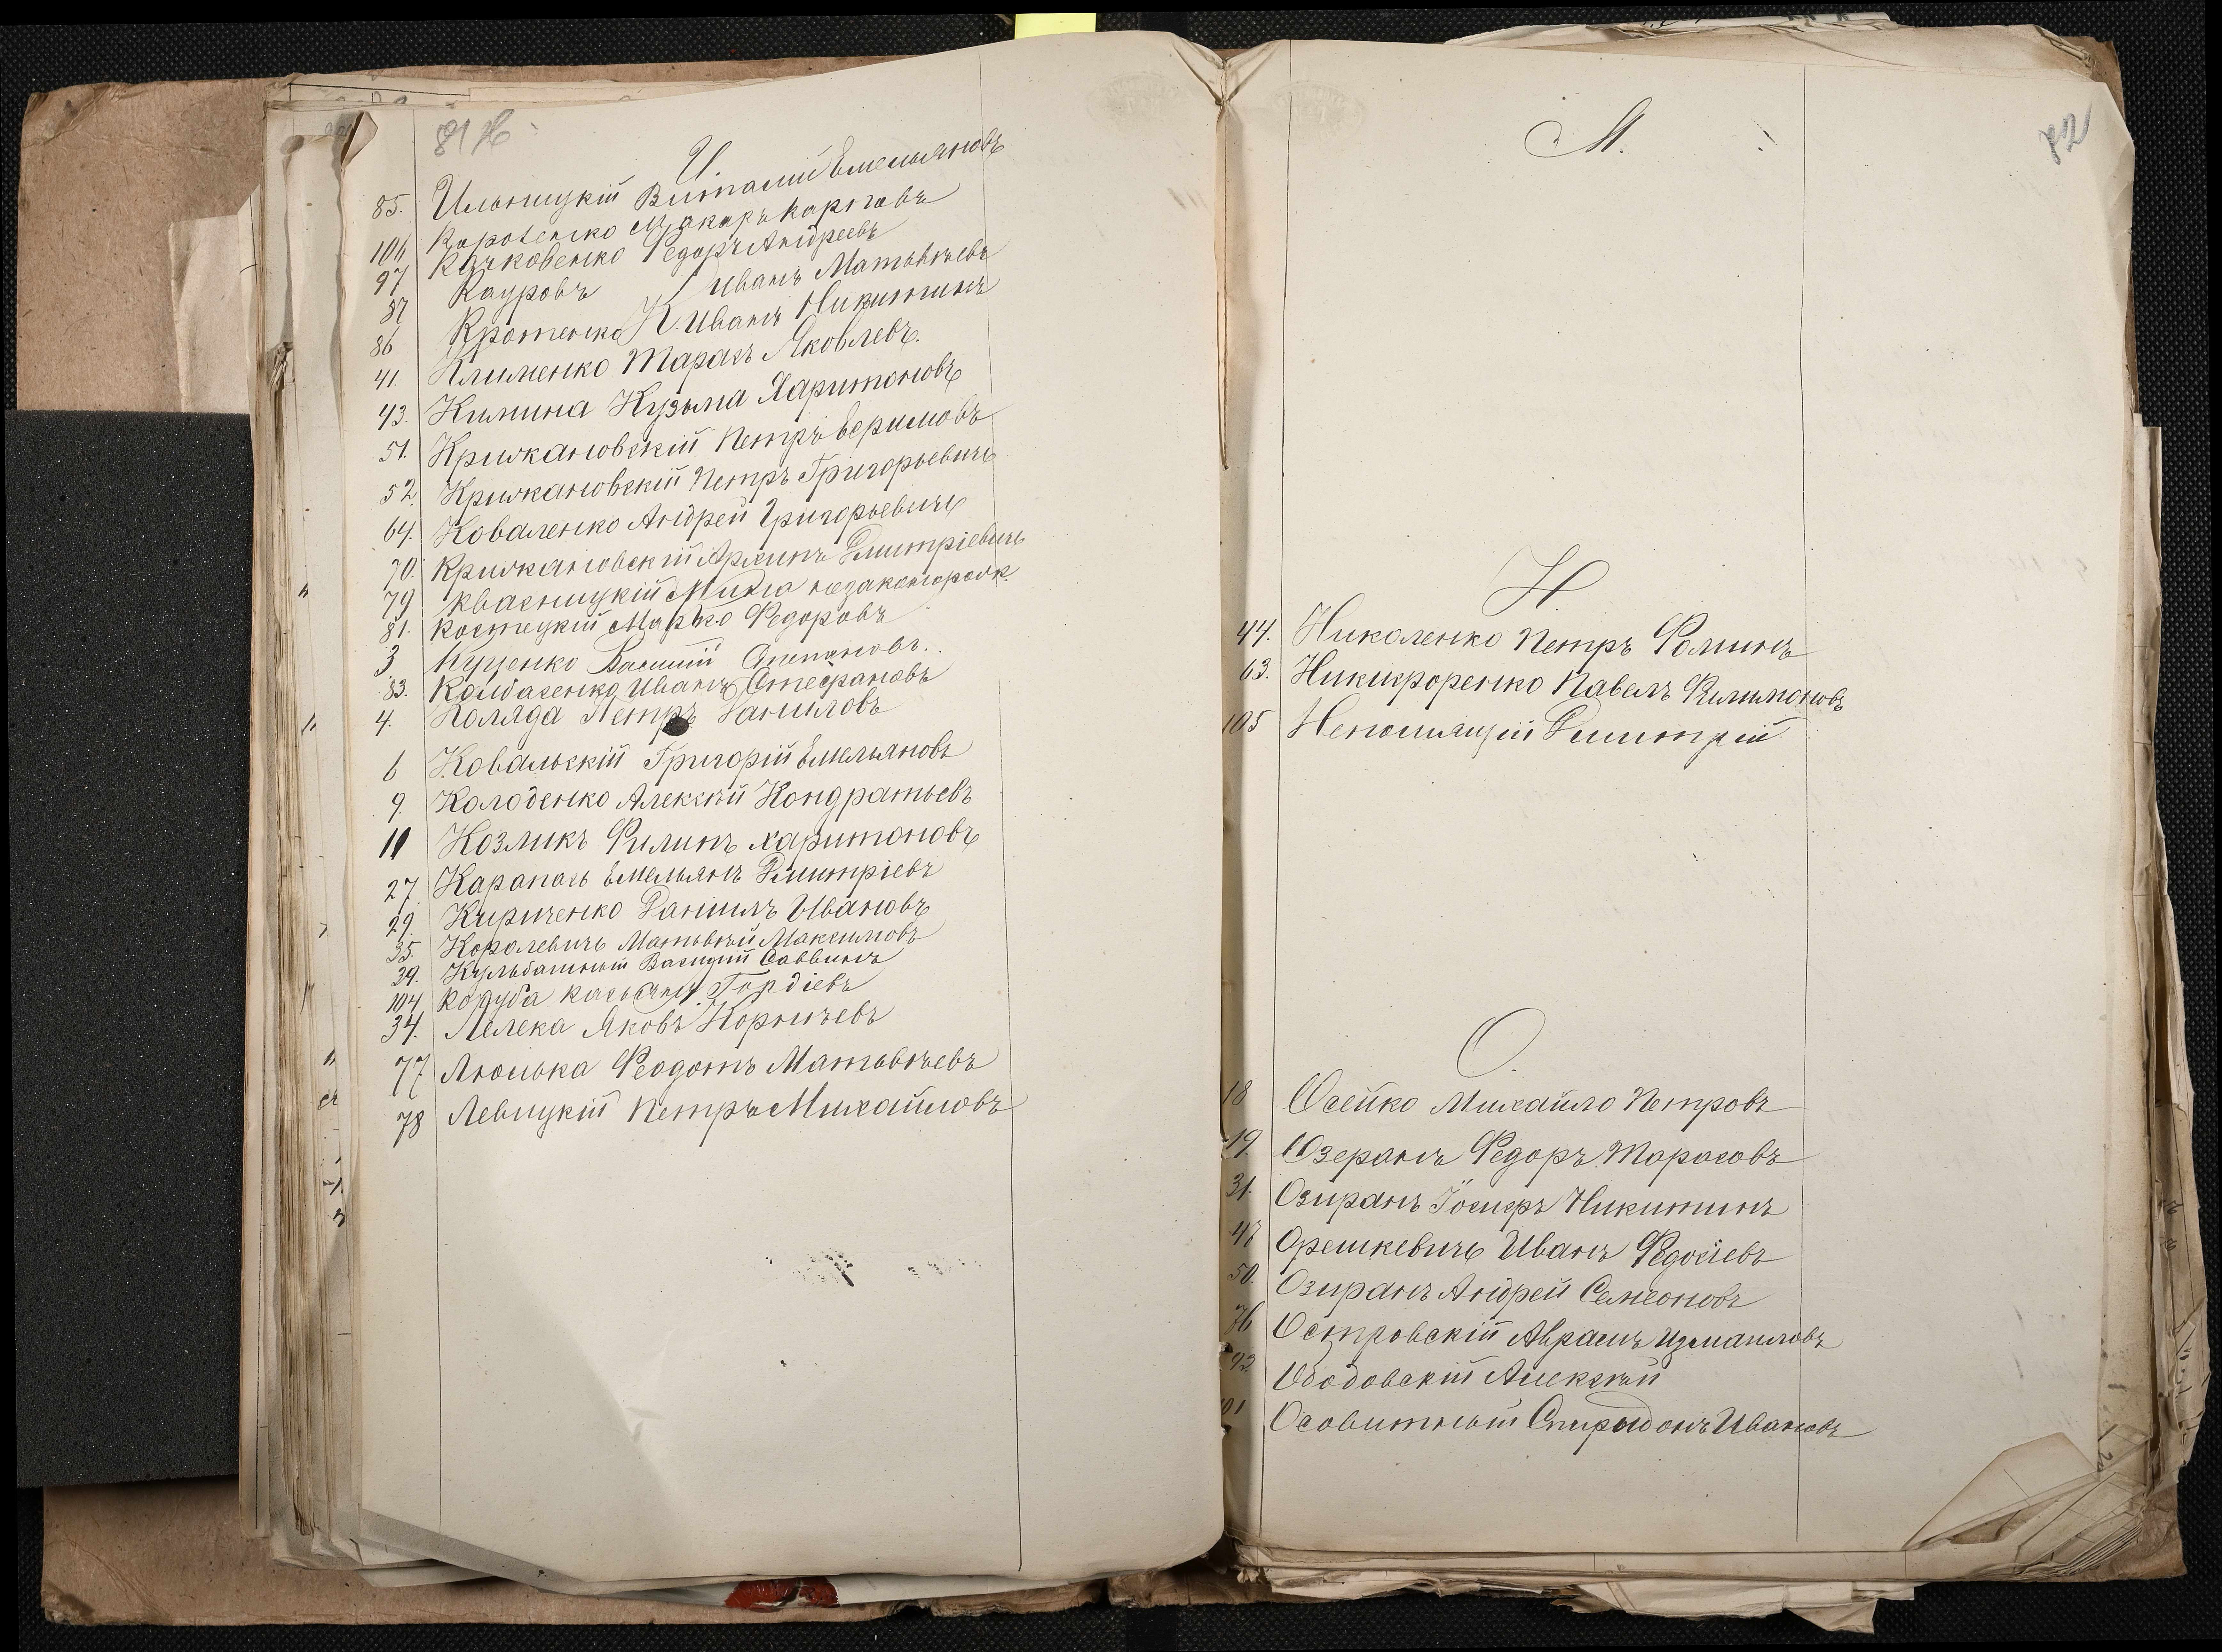 И.
85. Ильницкій Виталий Емельяновъ
106 Коробенко Макаръ Карповъ
97 Качковенко Федоръ Андреевъ
87 Кауровъ Иванъ Матвѣевъ
К.
86 Кротенко Иванъ Никитинъ
41. Клименко Тарасъ Яковлевъ.
43. Килина Кузьма Харитоновъ
51. Крижановскій Петръ
52. Крижановскій Петръ Григорьевичъ
64. Коваленко Андрей Григорьевичъ
70. Крижановскій Архипъ Дмитріевичъ
79 Квасницкій незаконорож.
81. Костецкій Марко Федоровъ
3 Куценко Степановъ.
83. Колбасенко Иванъ Стефановъ
4. Коляда Петръ Даниловъ
6 Ковальскій Григорій Емельяновъ
9. Колоденко Алексѣй Кондратьевъ
11 Козликъ Филипъ Харитоновъ
27. Карапась Емельянъ Дмитріевъ
29. Кириченко Даніилъ Ивановъ
35. Королевичъ Матвѣй Максимовъ
39. Кульбашный Василий Саввинъ
104 Коруба Касьянъ Гордіевъ
34. Лелека Яковъ Корнѣевъ
77 Люлька Феодотъ Матвѣевъ
78 Левицкій Петръ Михайловъ
72
М.
Н.
44. Николенко Петръ Фоминъ
63. Никифоренко Павелъ Филимоновъ
105 Непомящій Дмитрій
О.
18 Осейко Михайло Петровъ
19. Озеранъ Федоръ Тарасовъ
31. Озиранъ Іосифъ Никитинъ
47 Орешкевичъ Иванъ Федосіевъ
50. Озиранъ Андрей Семеоновъ
76 Островскій Аврамъ Измаиловъ
92 Ободовскій Алексѣй
101 Осовитный Спиридонъ Ивановъ